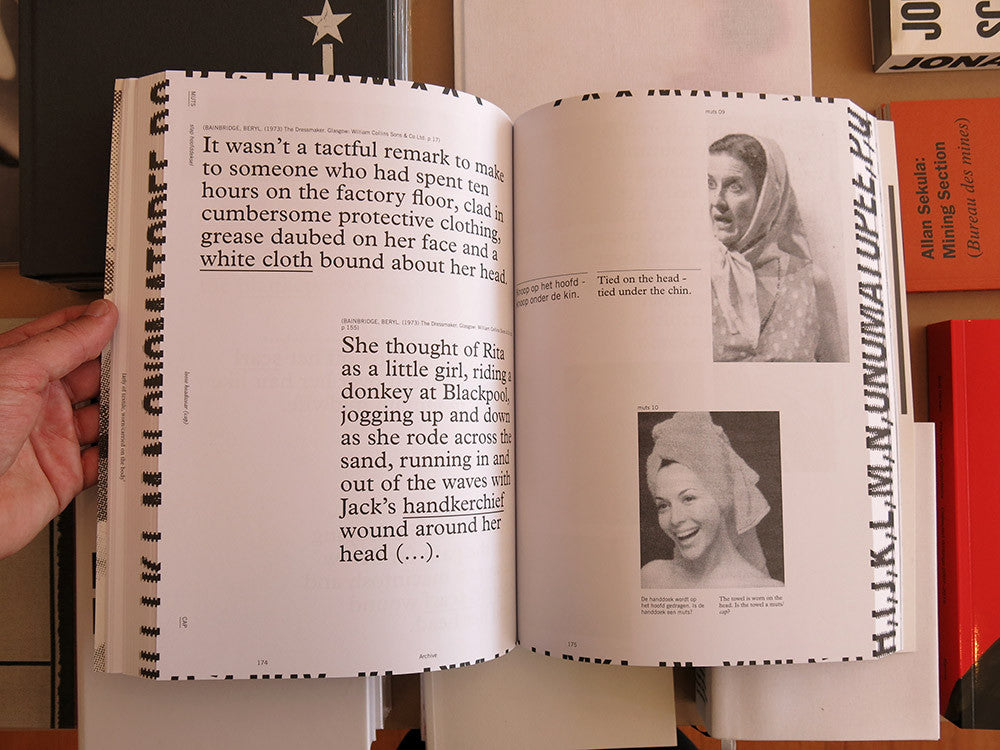 MUTS
slap hoofddeksel
(BAINBRIDGE, BERYL. (1973) The Dressmaker. Glasgow: William Collins Sons & Co Ltd. p 17)
It wasn't a tactful remark to make
to someone who had spent ten
hours on the factory floor, clad in
cumbersome protective clothing,
grease daubed on her face and a
white cloth bound about her head.
(BAINBRIDGE, BERYL. (1973) The Dressmaker. Glasgow: William Collins
p 155)
She thought of Rita
as a little girl, riding a
donkey at Blackpool,
jogging up and down
as she rode across the
sand, running in and
out of the waves with
Jack's handkerchief
wound around her
head (...).
CAP
174
Archive
muts 09
op het hoofd -
onder de kin.
Tied on the head -
tied under the chin.
muts 10
De handdoek wordt op
het hoofd gedragen. Is de
handdoek een muts?
The towel is worn on the
head. Is the towel a muts/
cap?
175
H,I,J,K,L,M,N,ONOMATOPEE,P,
Allan Sekula:
Mining Section
(Bureau des mines)
JONA